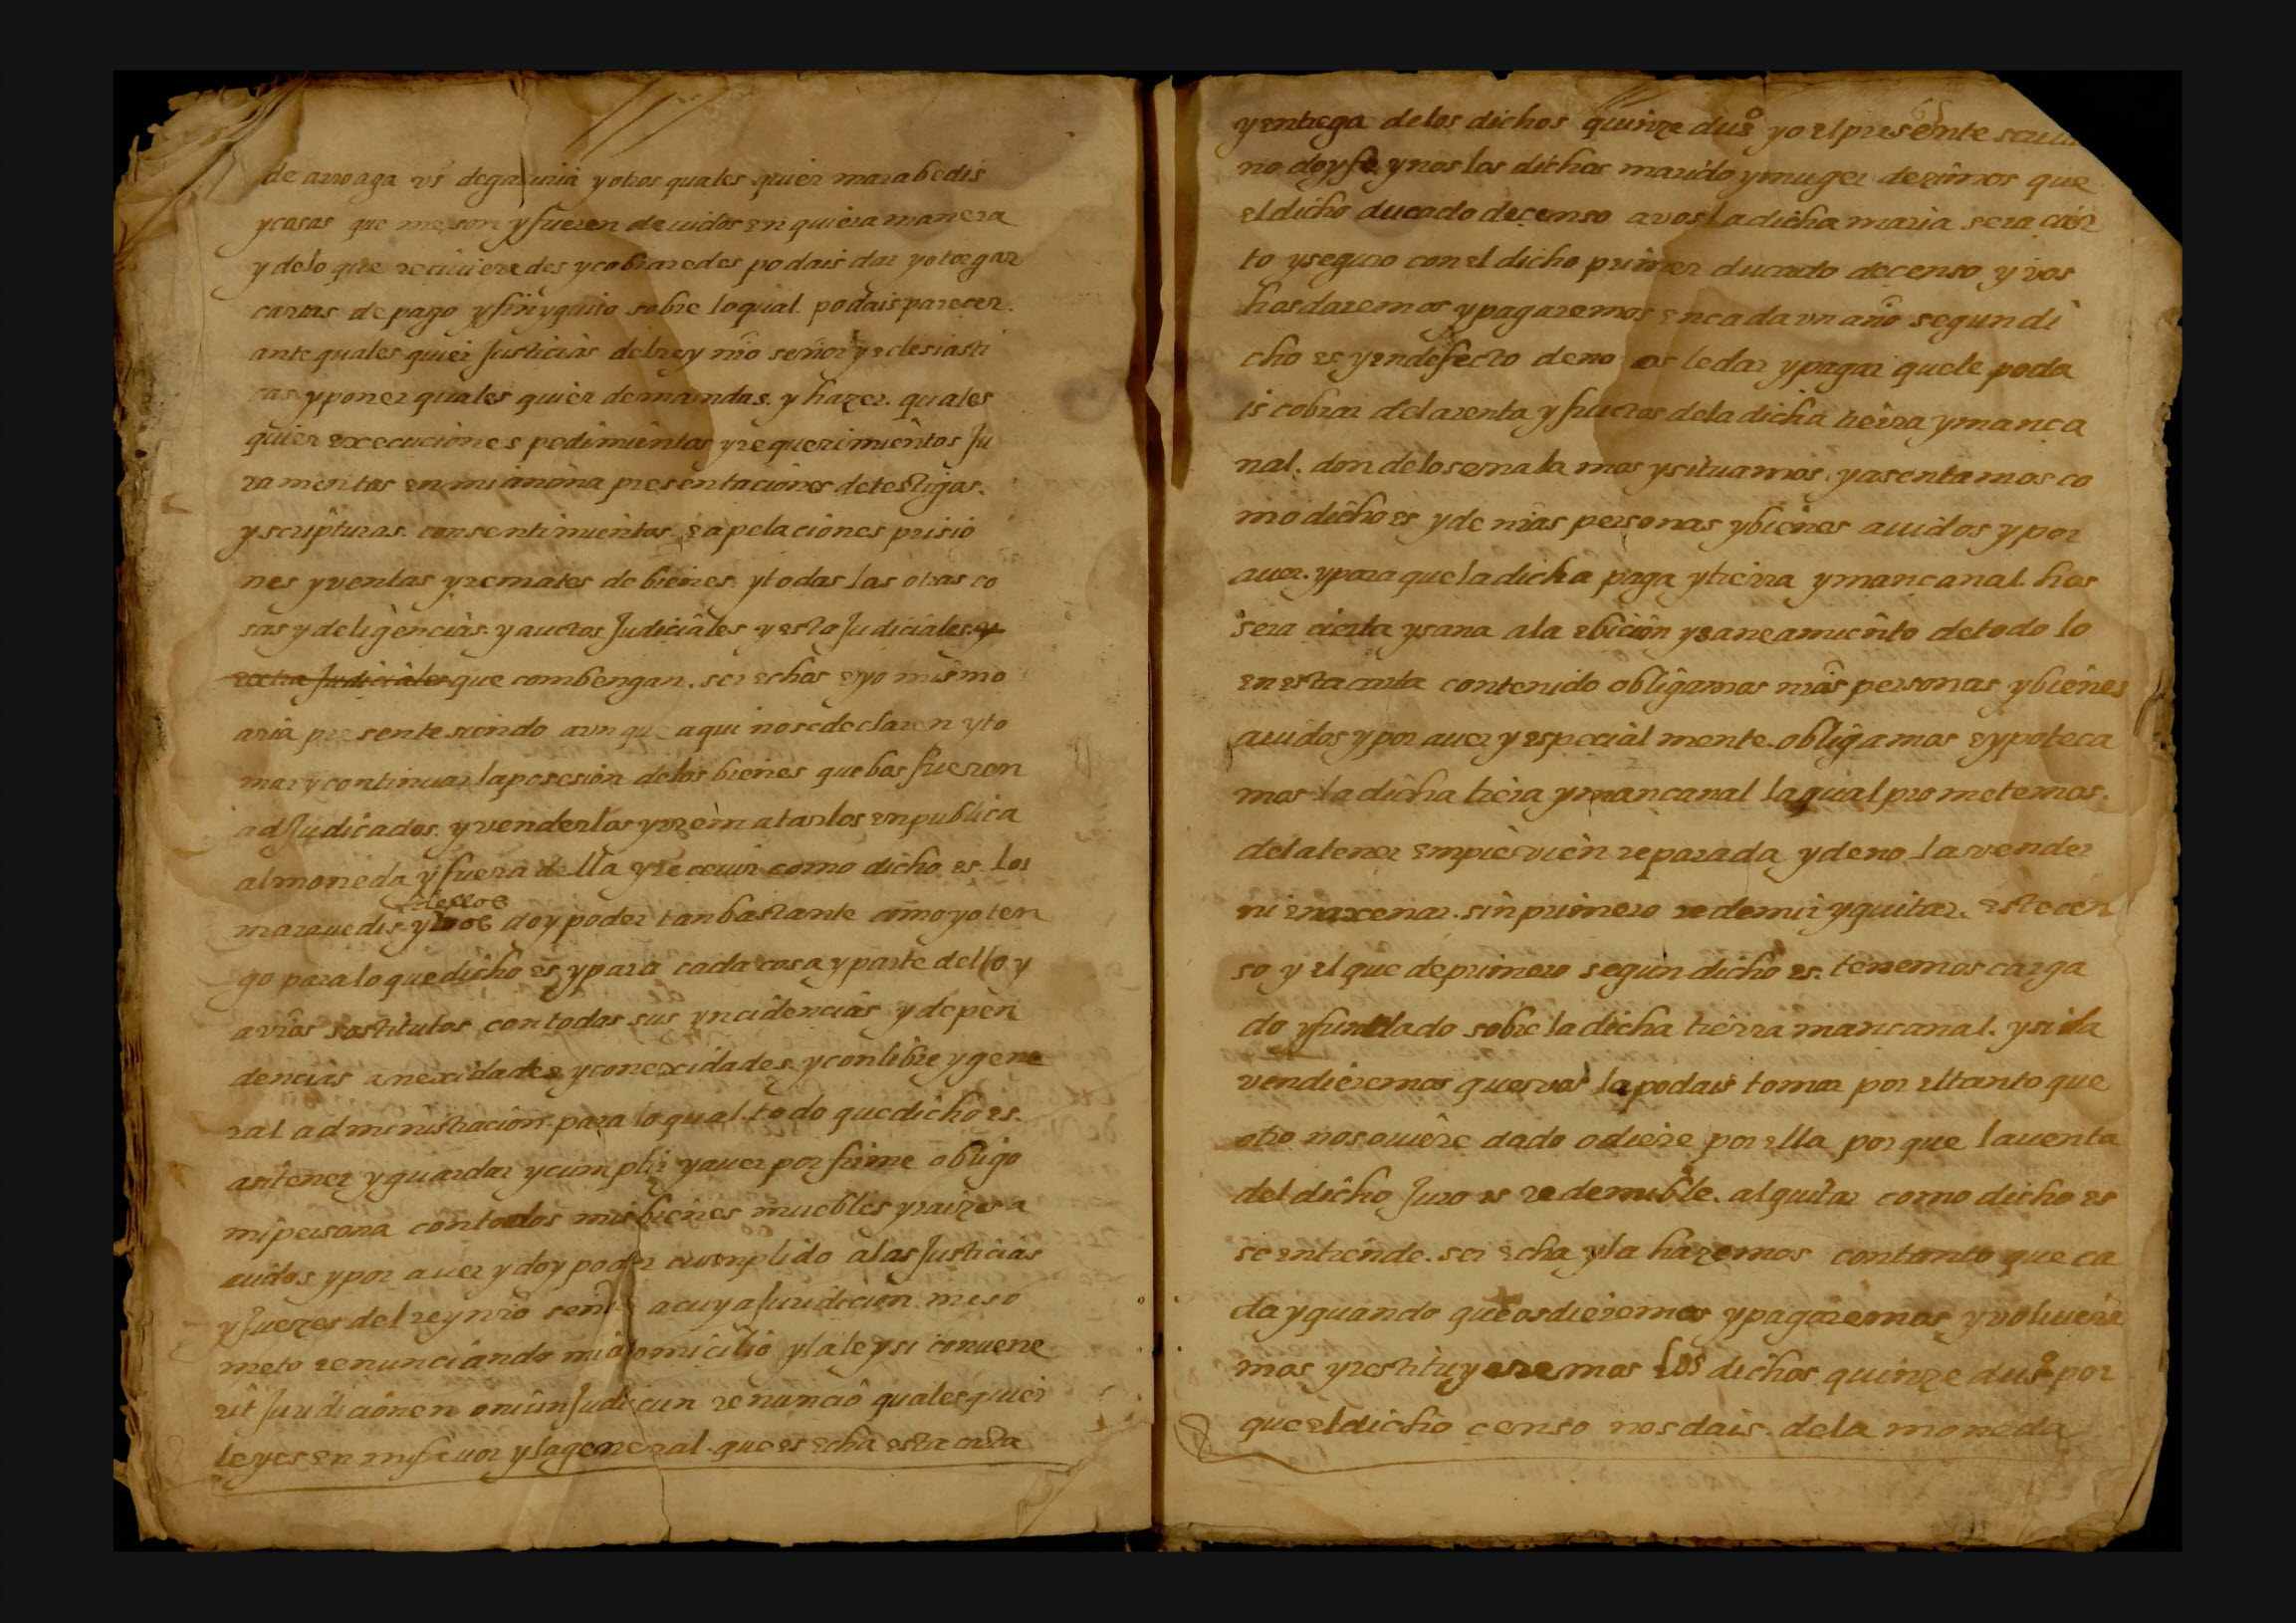 de arroaga vº de gaviria y otros quales quier marabedis
y cosas que me son y fueren devidos en quiera manera
y de lo que recivieredes y cobraredes podais dar y otorgar
cartas de pago y fin y quito sobre lo qual podais parecer
ante quales quier Justicias del rey nro señor y eclesiasti
cas y poner quales quier demandas y hazer quales
quier execuciones pedimientos y requerimientos Ju
ramentos en mi anima presentaciones de testigos
y scripturas consentimientos e apelaciones prisio
nes y ventas y remates de bienes y todas las otras co
sas y deligencias y auctos Judiciales y esta Judiciales y
extra Judiciales que combengan ser echas e yo mismo
aria presente siendo avn que aqui no se declaren y to
mar y continuar la posesion de los bienes que bos fueren
adJudicados y venderlos y rrematarlos en publica
almoneda y fuera della y recevir como dicho es los
dellos
maravedis y doy poder tan bastante como yo ten
go para lo que dicho es y para cada cosa y parte dello y
a vros sostitutos con todas sus yncidencias y depen
dencias anexidades y conexidades y con libre y gene
ral administracion para lo qual todo que dicho es
asi tener y guardar y cumplir y aver por firme obligo
mi persona con todos mis bienes muebles y raizes a
vidos y por aver y doy poder cumplido a las Justicias
y Juezes del rey nro señor a cuya Juridicion me so
meto renunciando mi domicilio y la ley si convene
rit Juridicionen oniun Judicun renuncio quales quier
leyes en mi favor y la general que es echa esta carta
y entrega de los dichos quinze duºs yo el presente scriva
no doy fe y nos los dichos marido y muger dezimos que
el dicho ducado de censo a vos la dicha maria sera cier
to y seguro con el dicho primer ducado de censo y vos
hos daremos y pagaremos en cada vn año segun di
cho es y en defecto de no os le dar y pagar que le poda
is cobrar de la renta y fructos de la dicha tierra y mança
nal donde lo señalamos y situamos y asentamos co
mo dicho es y de nras personas y bienes avidos y por
aver y para que la dicha paga y tierra y mançanal hos
sera cierta y sana a la ebicion y saneamiento de todo lo
en esta carta contenido obligamos nras personas y bienes
avidos y por aver y especial mente obligamos e ypoteca
mos la dicha tierra y mancanal la qual prometemos
de la tener empie vien reparada y de no la vender
ni enaxenar sin primero redemir y quitar este cen
so y el que de primero segun dicho es tenemos carga
do y fundado sobre la dicha tierra mancanal y si la
vendieremos que vos la podais tomar por el tanto que
otro nos oviere dado o diere por ella por que la venta
del dicho Juro es redemible al quitar como dicho es
se entiende ser echa y la hazemos con tanto que ca
da y quando que os dieremos y pagaremos y volviere
mos y restituyeremos los dichos quinze duºs por
que el dicho censo nos dais de la moneda